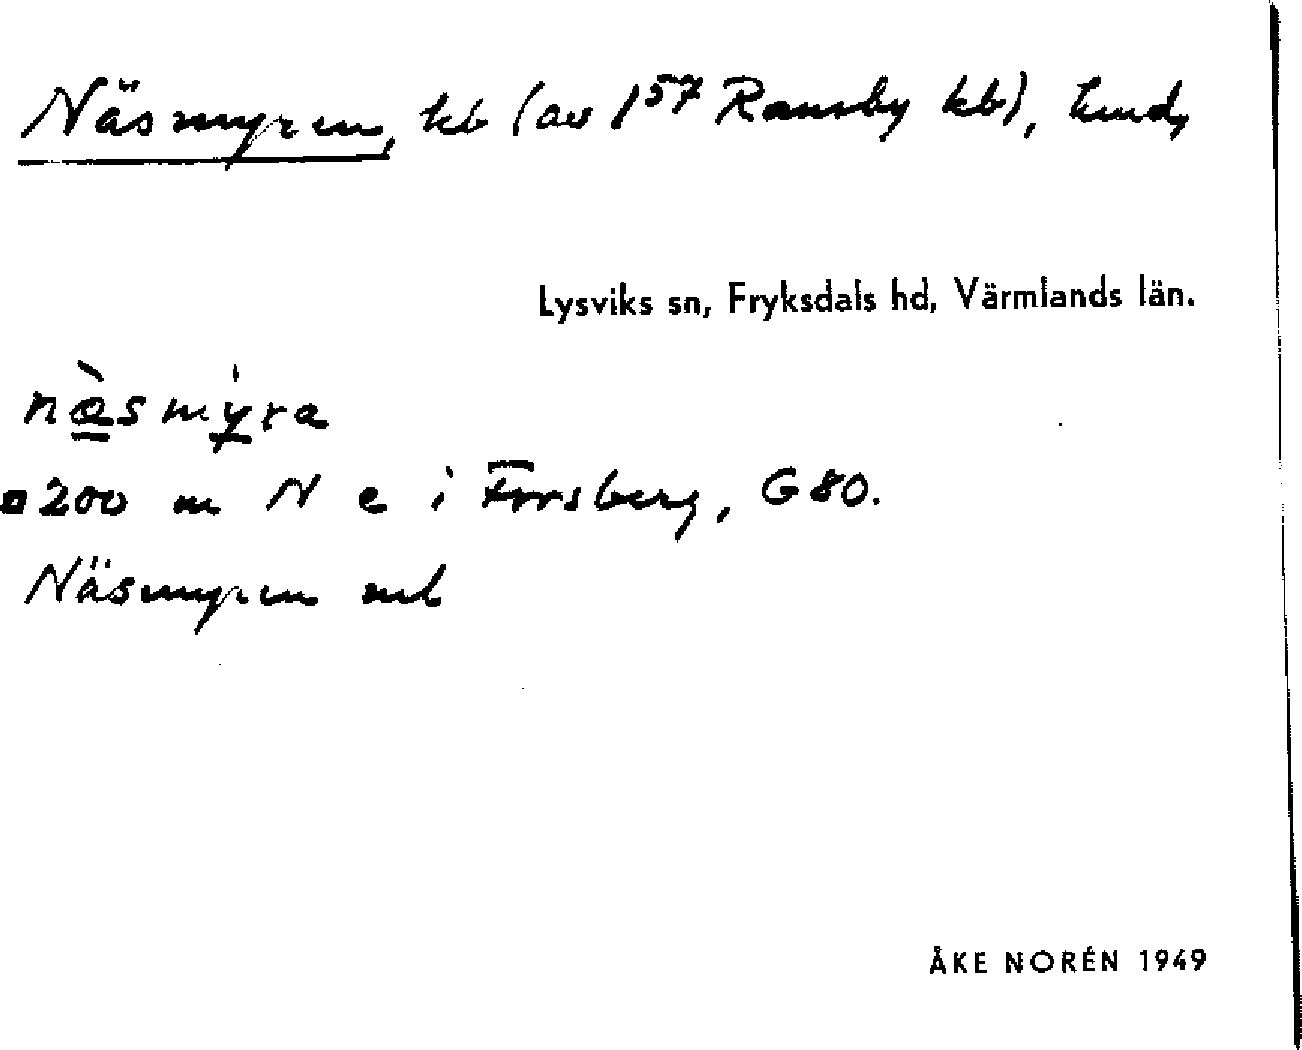 Näsmyren, kb (av 1⁵⁷ Ransby kb), Lund,
Lysviks sn, Fryksdals hd, Värmlands län.
næ̀smýra
200 m N e i Forsberg, G 80.
Näsmyren
ÅKE NORÉN 1949